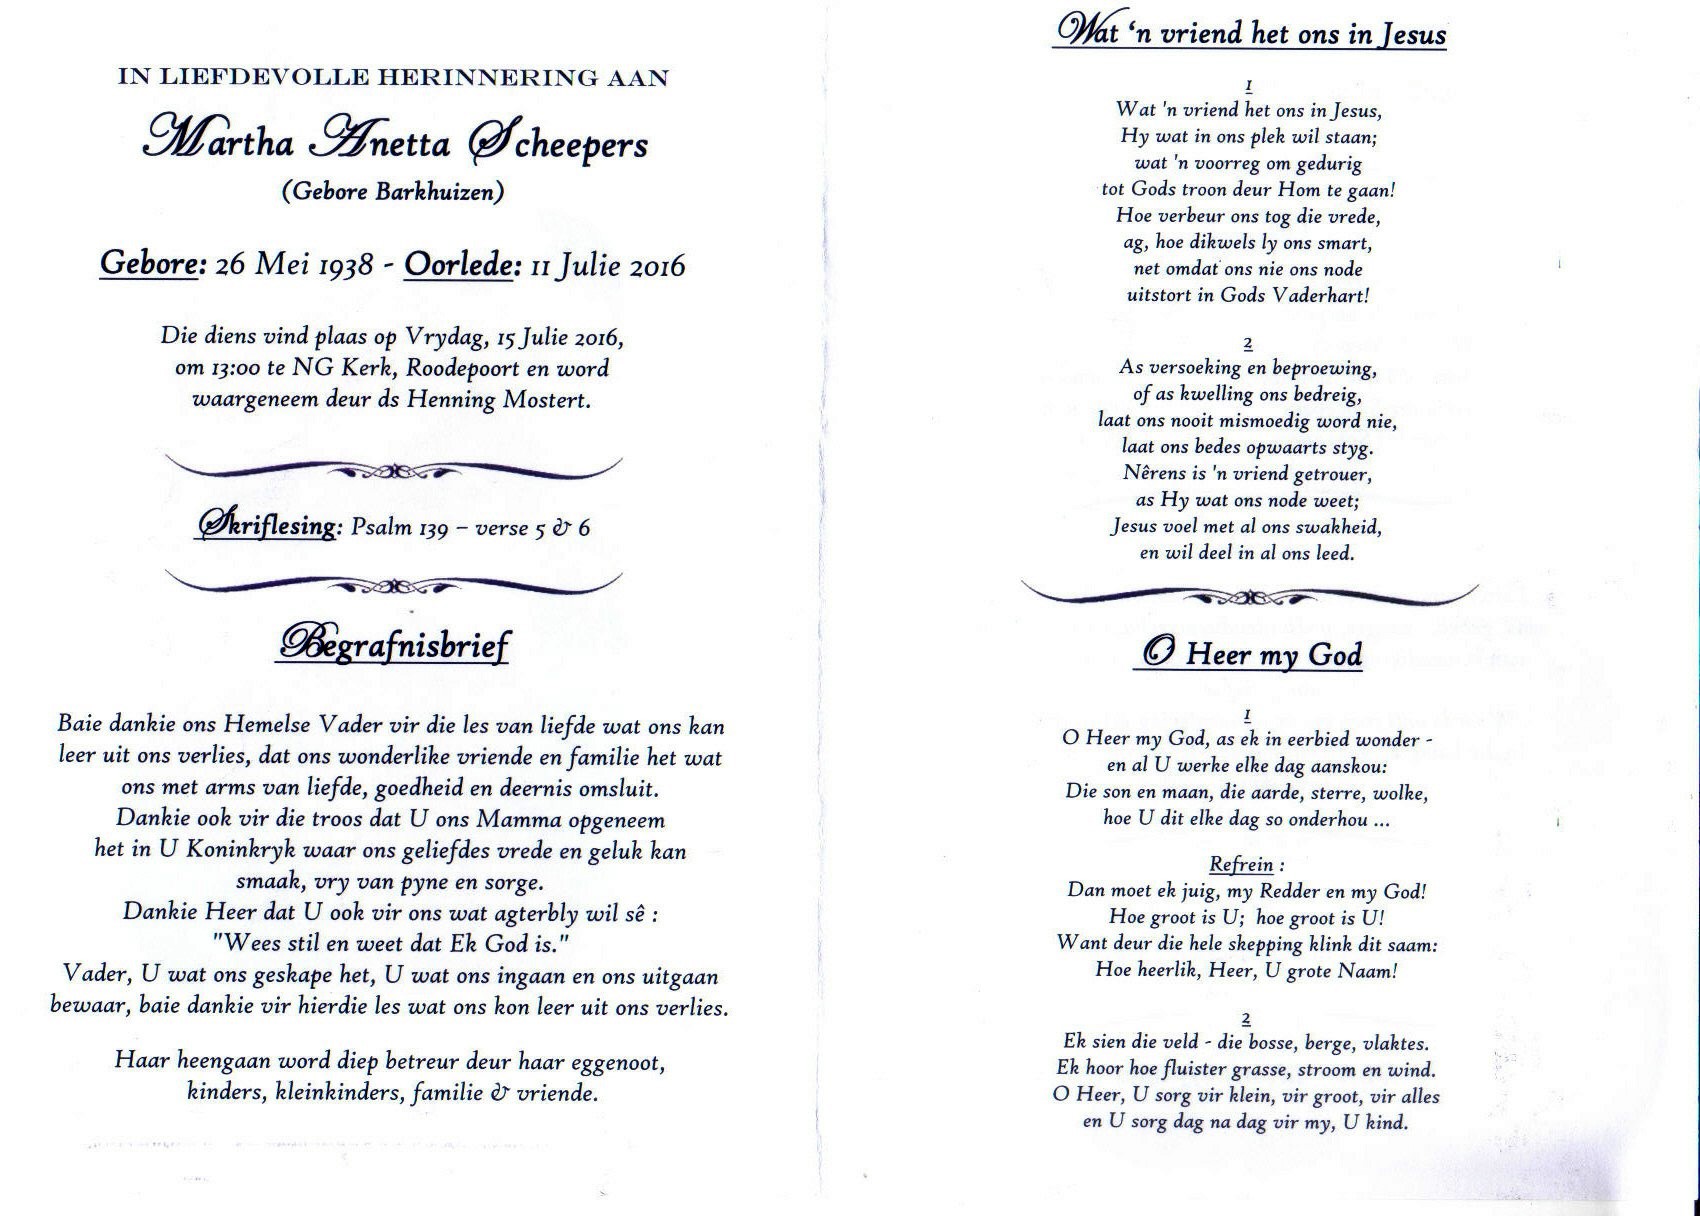 IN LIEFDEVOLLE HERINNERING AAN
Martha Anetta Scheepers
(Gebore Barkhuizen)
Gebore: 26 Mei 1938 - Oorlede: 11 Julie 2016
Die diens vind plaas op Vrydag, 15 Julie 2016,
om 13:00 te NG Kerk, Roodepoort en word
waargeneem deur ds Henning Mostert.
Skriflesing: Psalm 139 – verse 5 & 6
Begrafnisbrief
Baie dankie ons Hemelse Vader vir die les van liefde wat ons kan
leer uit ons verlies, dat ons wonderlike vriende en familie het wat
ons met arms van liefde, goedheid en deernis omsluit.
Dankie ook vir die troos dat U ons Mamma opgeneem
het in U Koninkryk waar ons geliefdes vrede en geluk kan
smaak, vry van pyne en sorge.
Dankie Heer dat U ook vir ons wat agterbly wil sê :
"Wees stil en weet dat Ek God is."
Vader, U wat ons geskape het, U wat ons ingaan en ons uitgaan
bewaar, baie dankie vir hierdie les wat ons kon leer uit ons verlies.
Haar heengaan word diep betreur deur haar eggenoot,
kinders, kleinkinders, familie & vriende.
Wat ‘n vriend het ons in Jesus
1
Wat 'n vriend het ons in Jesus,
Hy wat in ons plek wil staan;
wat 'n voorreg om gedurig
tot Gods troon deur Hom te gaan!
Hoe verbeur ons tog die vrede,
ag, hoe dikwels ly ons smart,
net omdat ons nie ons node
uitstort in Gods Vaderhart!
2
As versoeking en beproewing,
of as kwelling ons bedreig,
laat ons nooit mismoedig word nie,
laat ons bedes opwaarts styg.
Nêrens is 'n vriend getrouer,
as Hy wat ons node weet;
Jesus voel met al ons swakheid,
en wil deel in al ons leed.
O Heer my God
1
O Heer my God, as ek in eerbied wonder -
en al U werke elke dag aanskou:
Die son en maan, die aarde, sterre, wolke,
hoe U dit elke dag so onderhou ...
Refrein :
Dan moet ek juig, my Redder en my God!
Hoe groot is U; hoe groot is U!
Want deur die hele skepping klink dit saam:
Hoe heerlik, Heer, U grote Naam!
2
Ek sien die veld - die bosse, berge, vlaktes.
Ek hoor hoe fluister grasse, stroom en wind.
O Heer, U sorg vir klein, vir groot, vir alles
en U sorg dag na dag vir my, U kind.